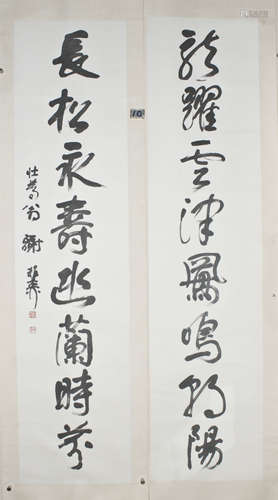 龍躍云津鳳鳴朝陽
長松永壽幽蘭時芬
壯暮翁謝稚柳
10